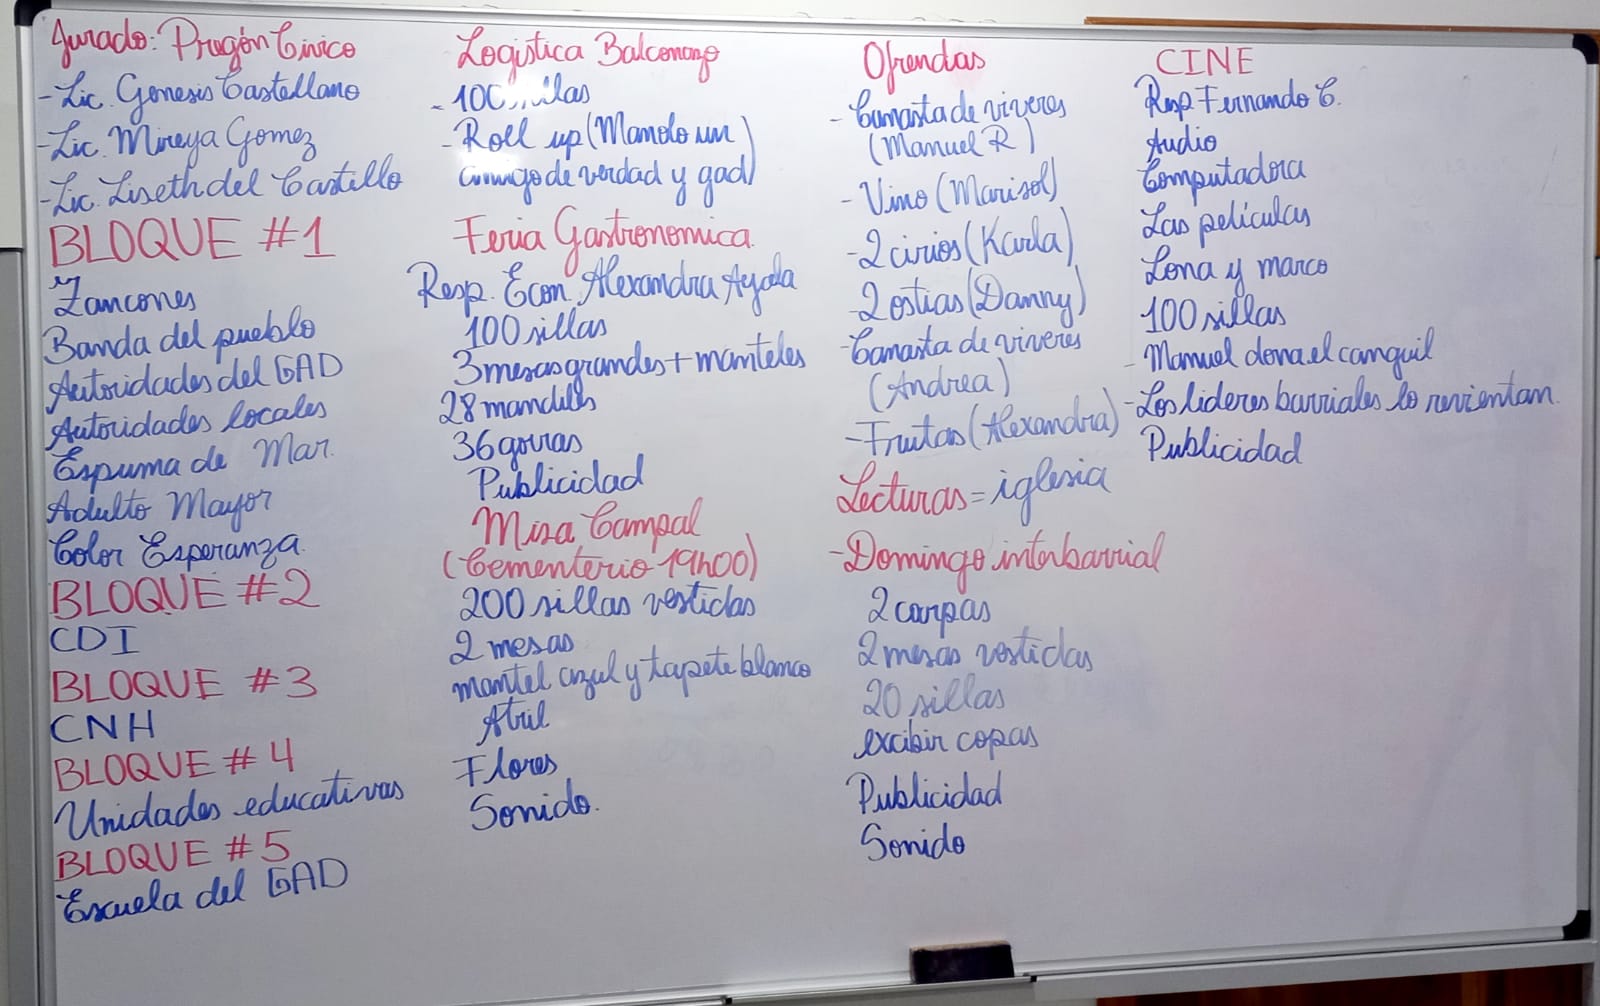 Jurado: Pregón Cívico
- Lic. Genesis Castellano
- Lic. Mireya Gomez
- Lic. Liseth del Castillo
BLOQUE #1
Zancones
Banda del pueblo
Autoridades del GAD
Autoridades locales
Espuma de Mar.
Adulto Mayor
Color Esperanza.
BLOQUE #2
CDI
BLOQUE #3
CNH
BLOQUE #4
Unidades educativas
BLOQUE #5
Escuela del GAD
Logistica Balconazo
- 100 sillas
- Roll up (Manolo un
amigo de verdad y gad)
Feria Gastronomica.
Resp. Econ. Alexandra Ayala
100 sillas
3 mesas grandes + manteles
28 mandiles
36 gorras
Publicidad
Misa Campal
(Cementerio 19h00)
200 sillas vestidas
2 mesas
mantel azul y tapete blanco
Atril
Flores
Sonido.
Ofrendas
- Canasta de viveres
(Manuel R)
- Vino (Marisol)
- 2 cirios (Karla)
- 2 ostias (Danny)
- Canasta de viveres
(Andrea)
- Frutas (Alexandra)
Lecturas = iglesia
- Domingo interbarrial
2 carpas
2 mesas vestidas
20 sillas
excibir copas
Publicidad
Sonido
CINE
Resp. Fernando C.
Audio
Computadora
Las películas
Lona y marco
100 sillas
- Manuel dona el canguil
- Los lideres barriales lo revientan.
Publicidad